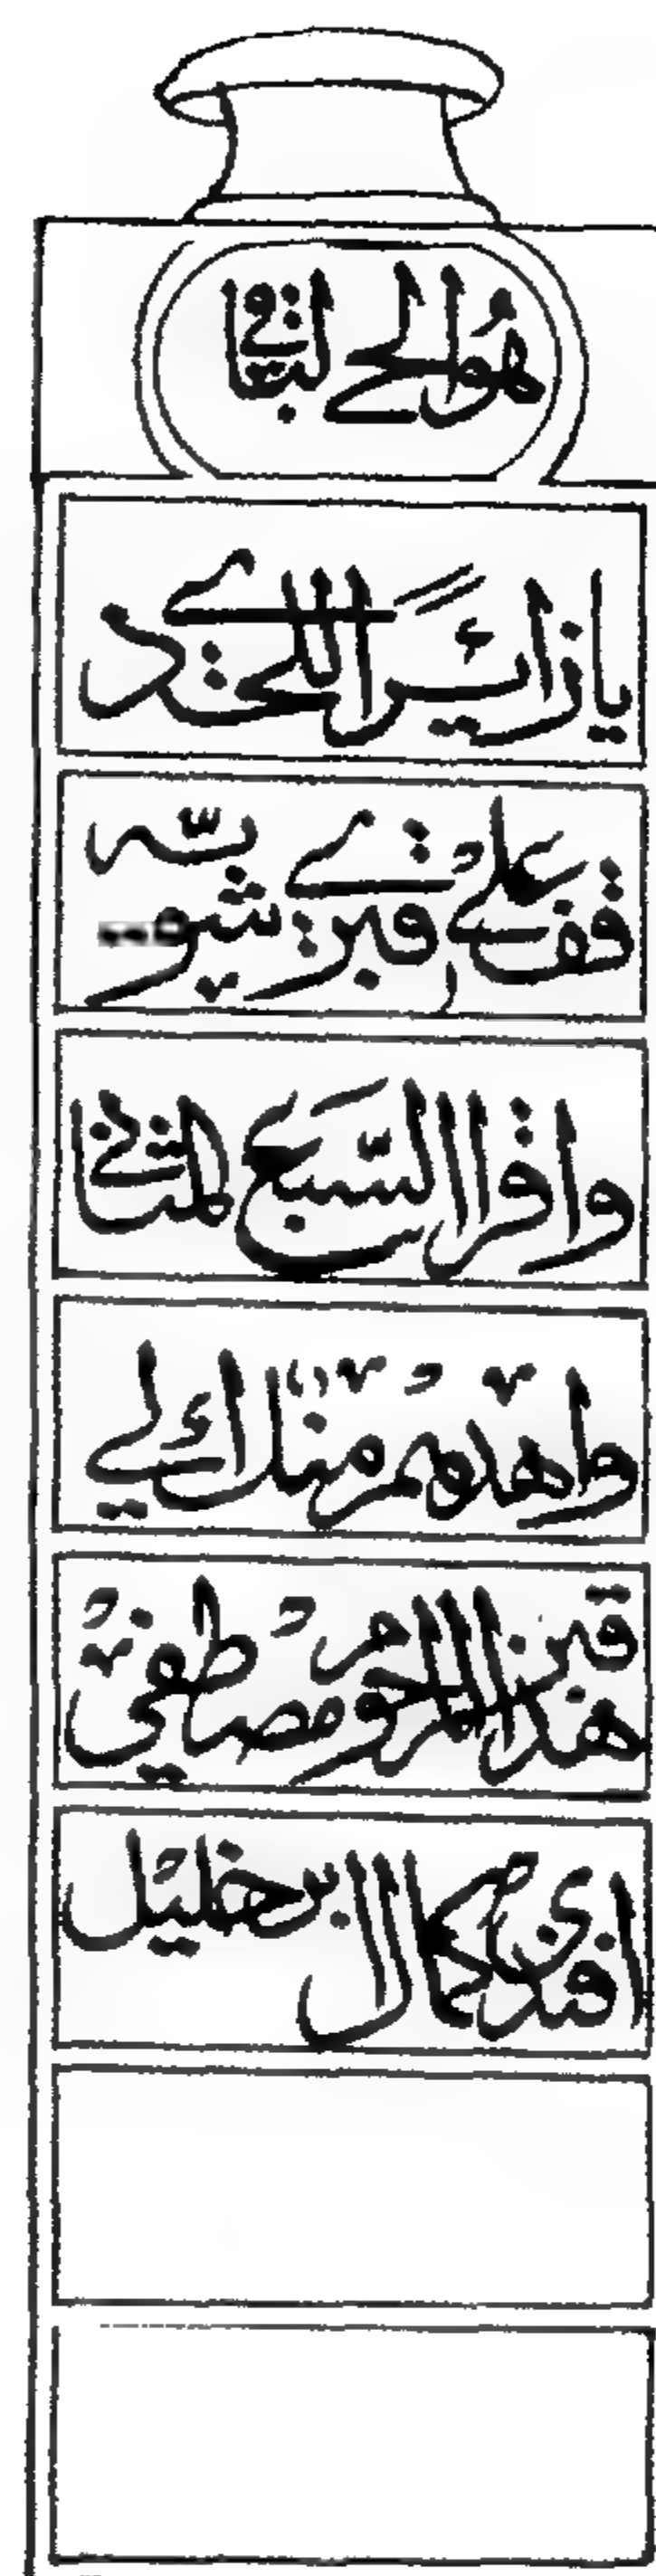 هُوَ الحي الباقي
يا زائرًا اللحدي
قف على قبري شويه
واقرا السبع المثاني
واهدهم منك الي
قبر هذا المرحوم مصطفى
افندي بن خليل